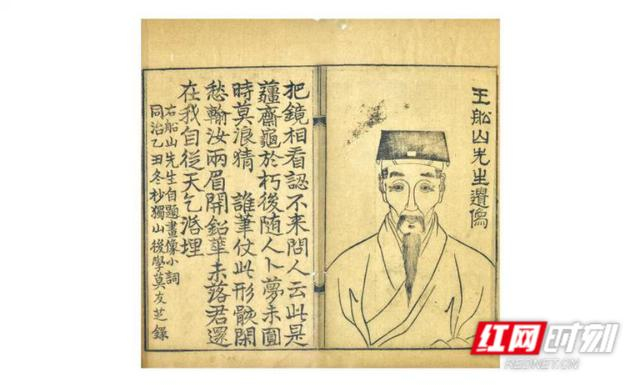 王船山先生遺像
把鏡相看認不來問人云此是
薑齋龜於朽後隨人卜夢未圓
時莫浪猜　誰筆仗此形骸閒
愁輸汝兩眉開鉛華未落君還
在我自從天乞活埋
右船山先生自題畫像小詞
同治乙丑冬杪獨山後學莫友芝錄
红网时刻
REDNET.CN